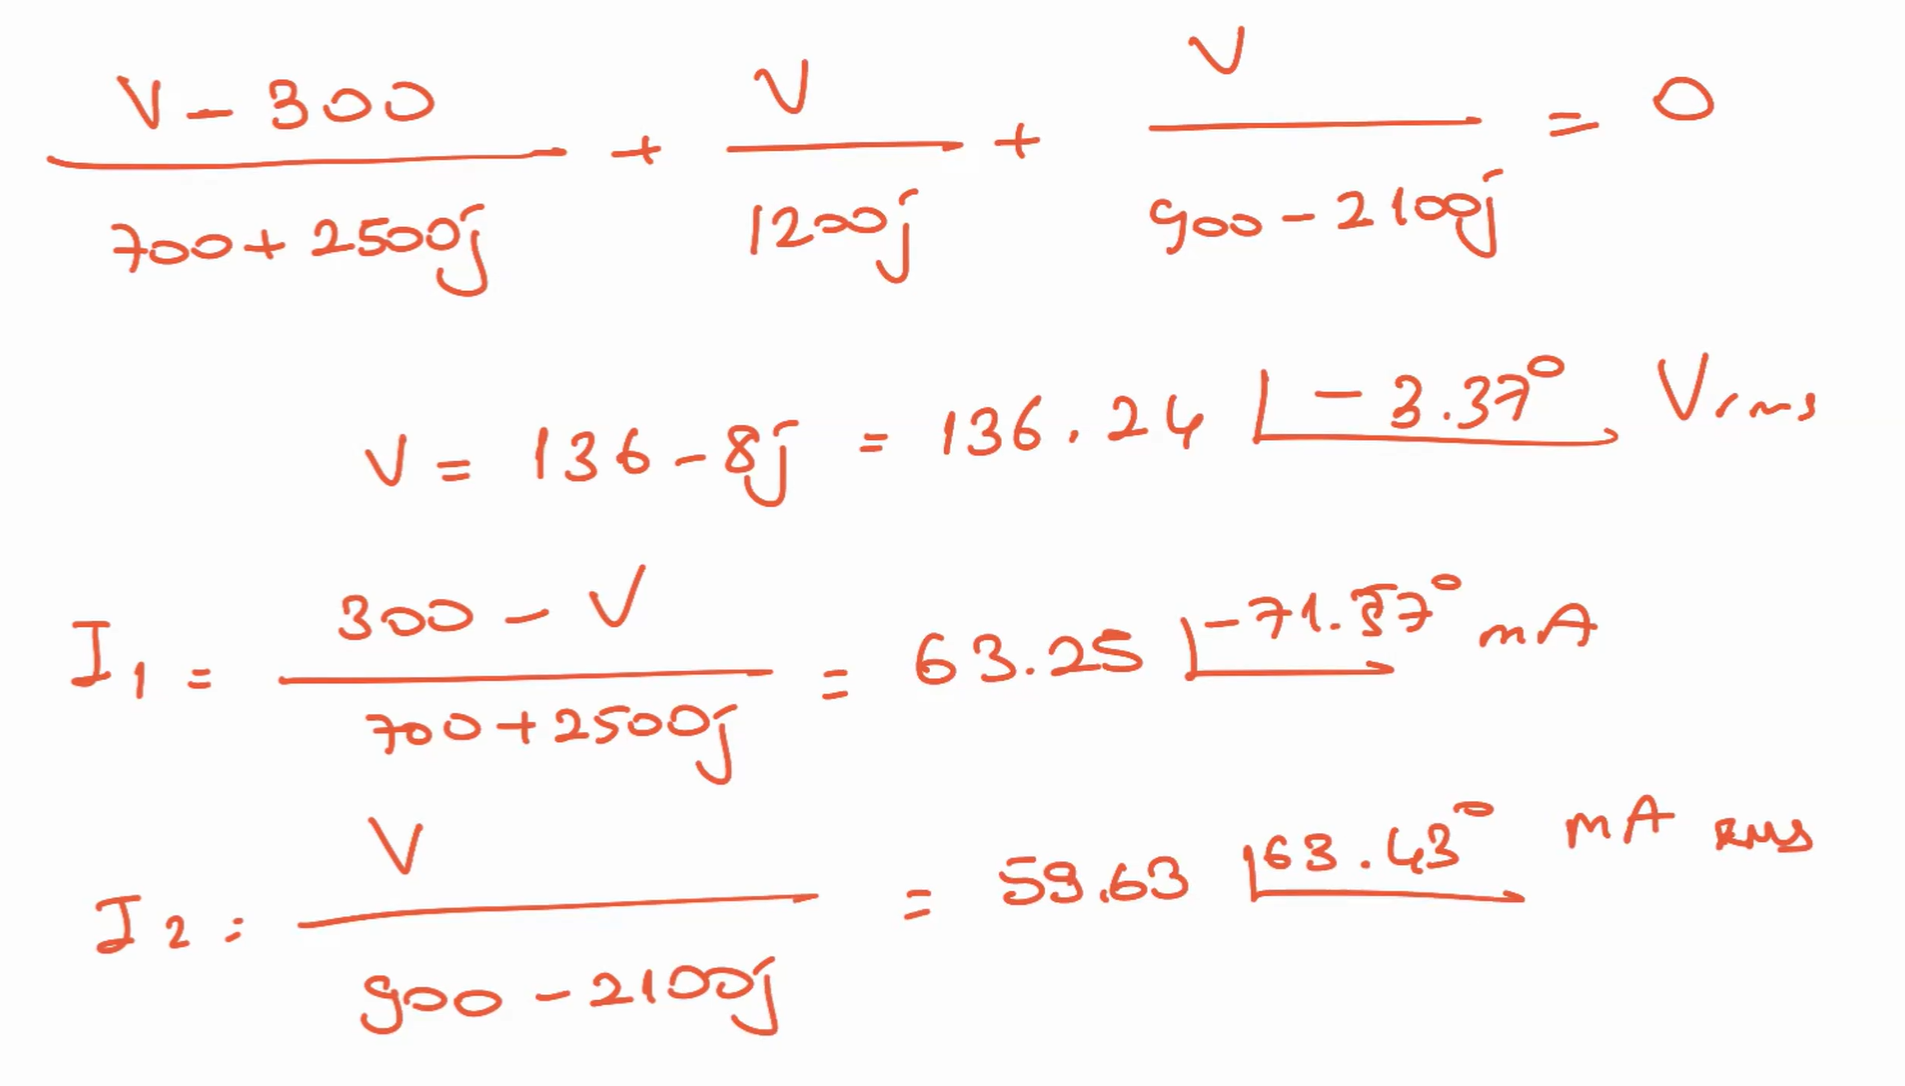 (V - 300)/(700 + 2500j) + V/1200j + V/(900 - 2100j) = 0
V = 136 - 8j = 136.24 ∠-3.37° Vrms
I₁ = (300 - V)/(700 + 2500j) = 63.25 ∠-71.57° mA
I₂ = V/(900 - 2100j) = 59.63 ∠63.43° mA RMS